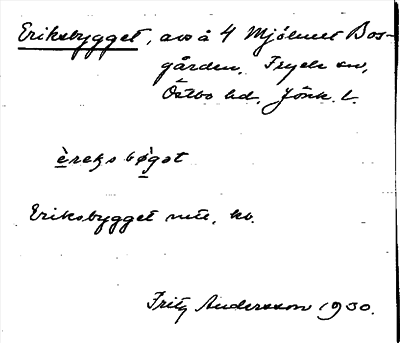 Eriksbygget, avs å 4 Mjölnet Bos-
gården, Tryde sn,
Östbo hd. Jönk. l.
èreks bø̀gət
Eriksbygget mtt. kb.
Fritz Andersson 1930.